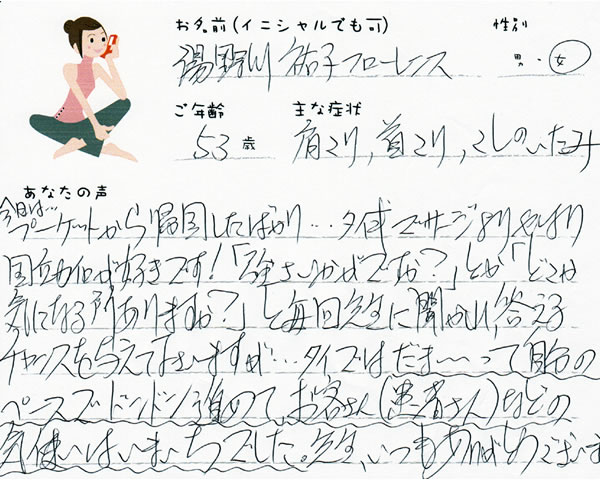 お名前(イニシャルでも可) 性別
湯野川 祐子フローレンス 男・女
ご年齢 主な症状
53歳 肩こり, 首こり, こしのいたみ
あなたの声
今日は…
プーケットから帰国したばかり…タイ式マッサージよりやはり
国立カイロが好きです!「強さいかがですか?」とか「どこか
気になる所ありますか?」と毎回先生に聞かれ, 答える
チャンスを与えて下さいますが…タイではだま〜〜って自分の
ペースでドンドン進めて、お客さん(患者さん)などの
気使いはいまいちでした。先生、いつもありがとうございま